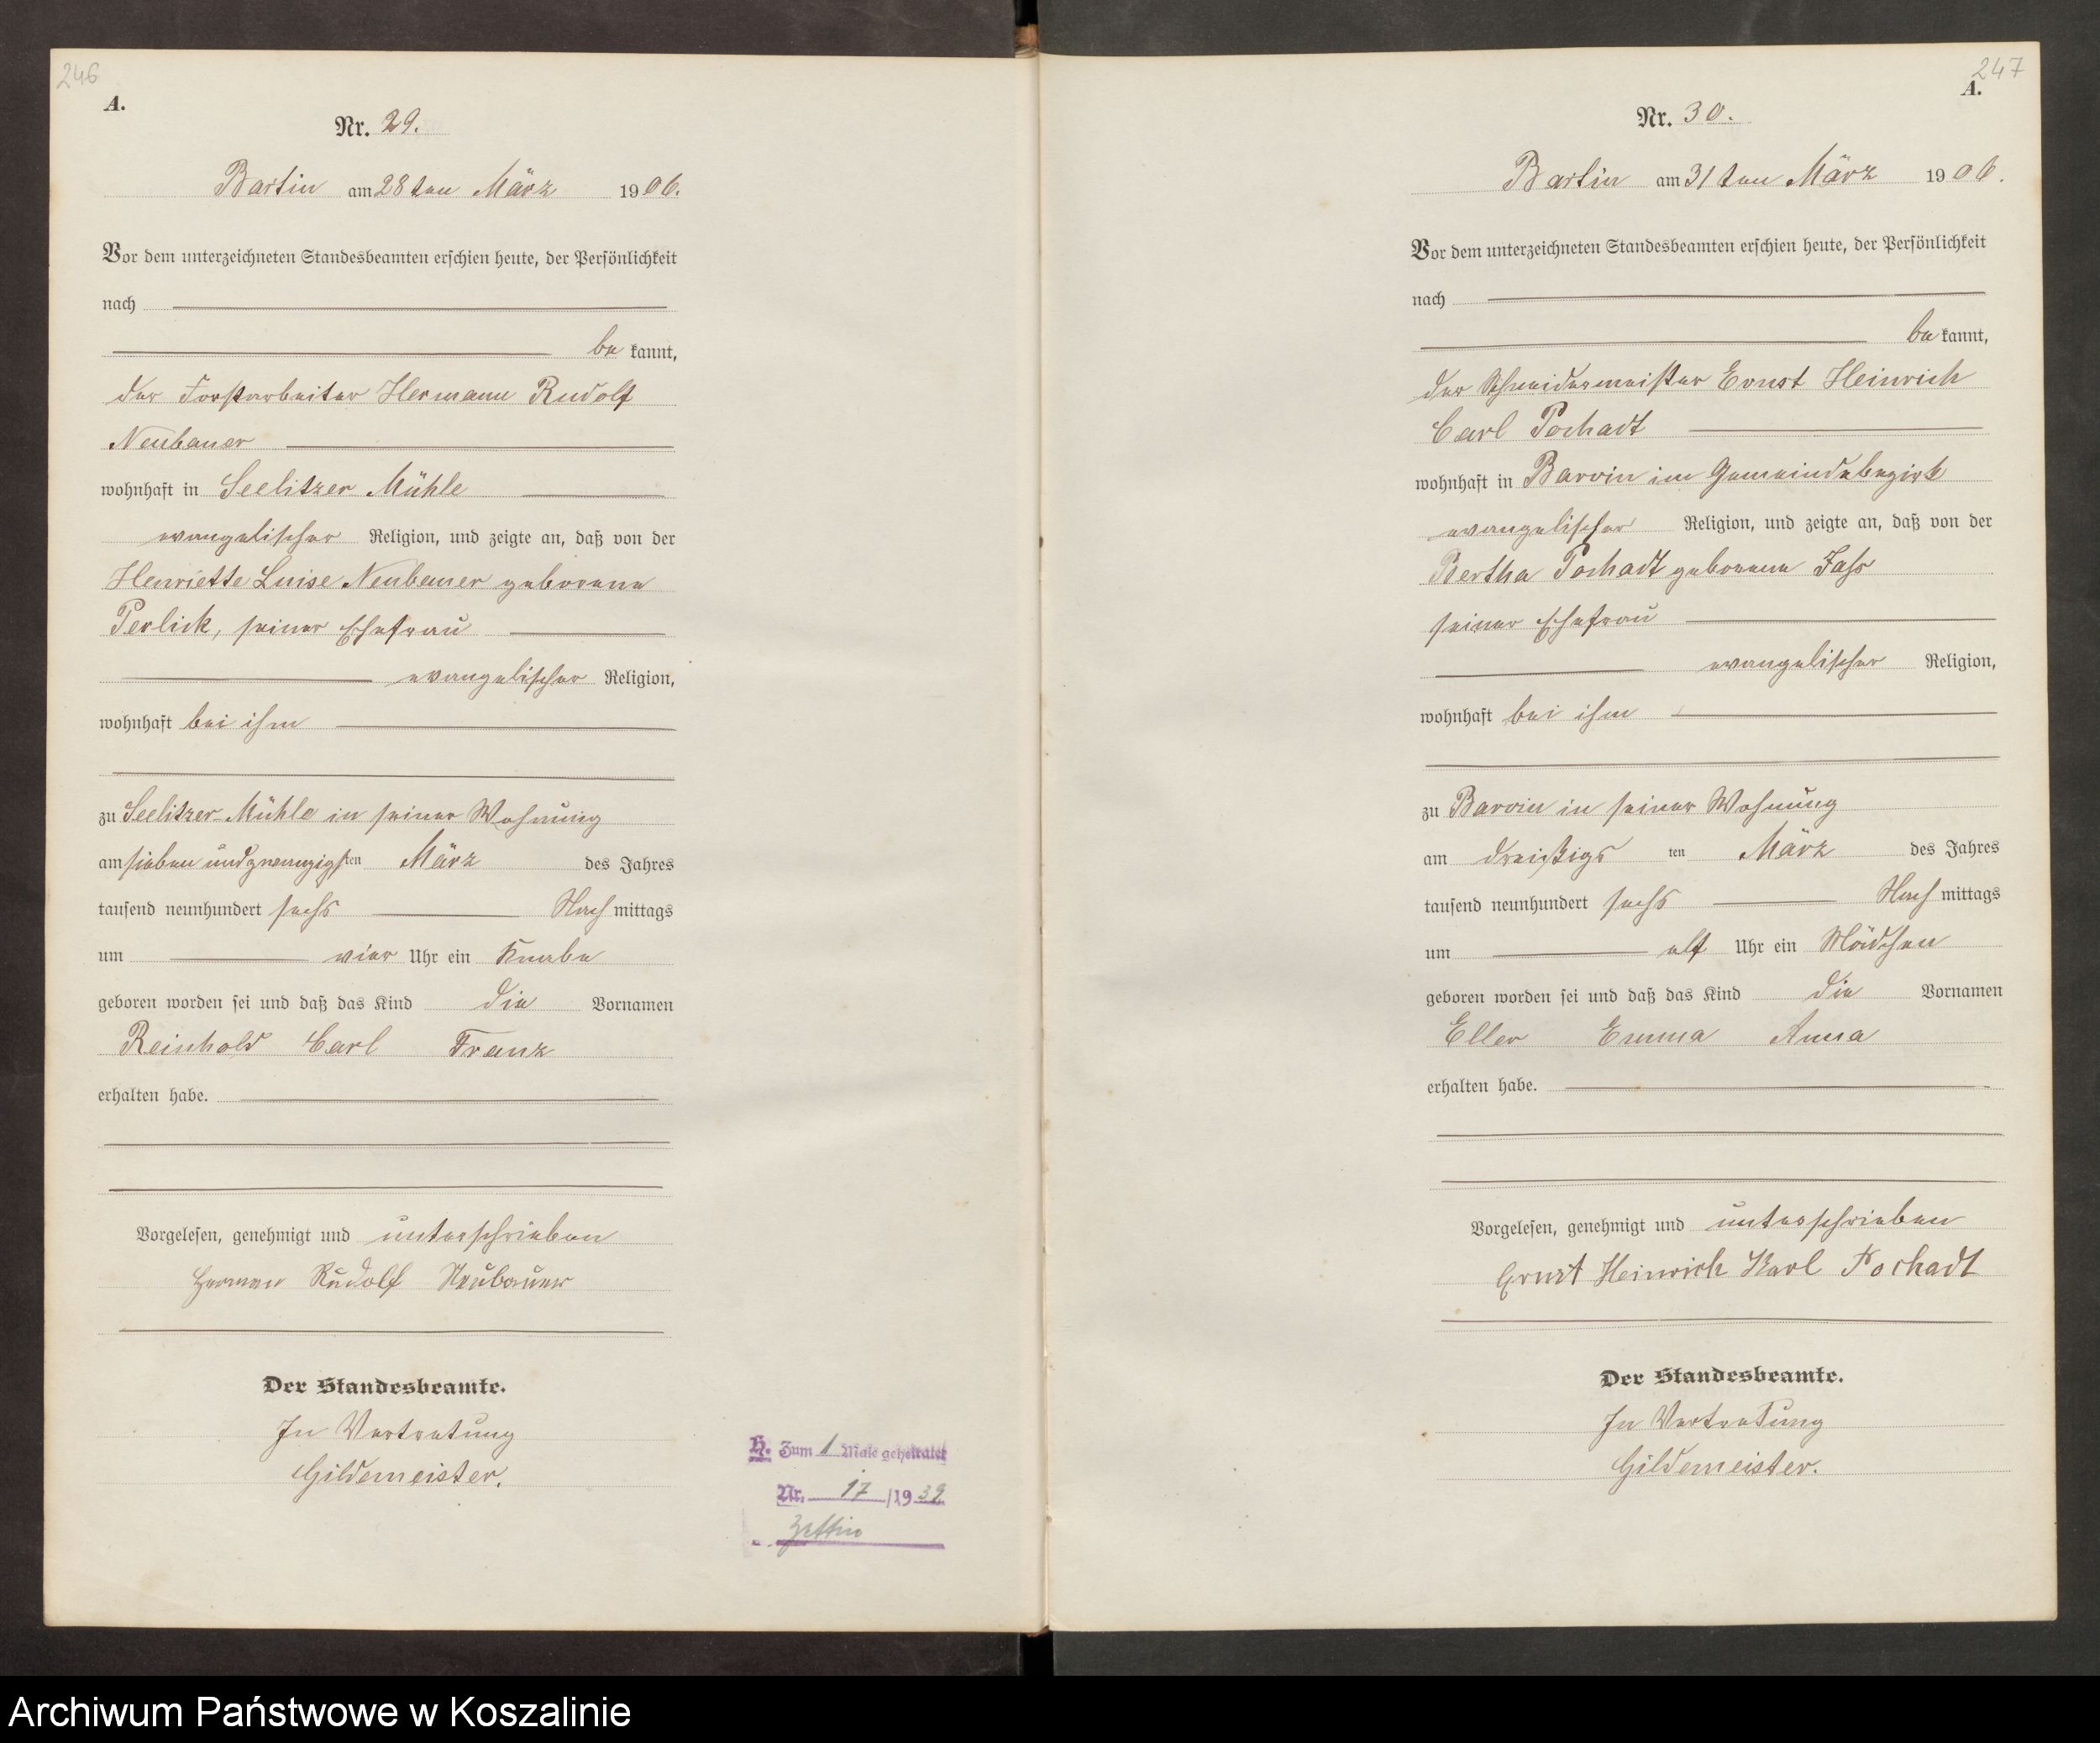 246
A.
Nr. 29.
Bartin am 28 ten März 1906.
Vor dem unterzeichneten Standesbeamten erschien heute, der Persönlichkeit
nach
be kannt,
der Forstarbeiter Hermann Rudolf
Neubauer
wohnhaft in Seelitzer Mühle
evangelischer Religion, und zeigte an, daß von der
Henriette Luise Neubauer geborene
Perlick, seiner Ehefrau
evangelischer Religion,
wohnhaft bei ihm
zu Seelitzer-Mühle in seiner Wohnung
am sieben und zwanzigsten März des Jahres
tausend neunhundert sechs Nach mittags
um vier Uhr ein Knabe
geboren worden sei und daß das Kind die Vornamen
Reinhold Carl Franz
erhalten habe.
Vorgelesen, genehmigt und unterschrieben
Herman Rudolf Neubauer
Der Standesbeamte.
In Vertretung
Gildemeister.
H. Zum 1 Male geheiratet
Nr. 17 /1939
Zettin
247
A.
Nr. 30.
Bartin am 31 ten März 1906.
Vor dem unterzeichneten Standesbeamten erschien heute, der Persönlichkeit
nach
be kannt,
der Schneidermeister Ernst Heinrich
Carl Pochadt
wohnhaft in Barvin im Gemeindebezirk
evangelischer Religion, und zeigte an, daß von der
Bertha Pochadt geborene Fass
seiner Ehefrau
evangelischer Religion,
wohnhaft bei ihm
zu Barvin in seiner Wohnung
am dreißigs ten März des Jahres
tausend neunhundert sechs Nach mittags
um elf Uhr ein Mädchen
geboren worden sei und daß das Kind die Vornamen
Eller Emma Anna
erhalten habe.
Vorgelesen, genehmigt und unterschrieben
Ernst Heinrich Karl Pochadt
Der Standesbeamte.
In Vertretung
Gildemeister.
Archiwum Państwowe w Koszalinie